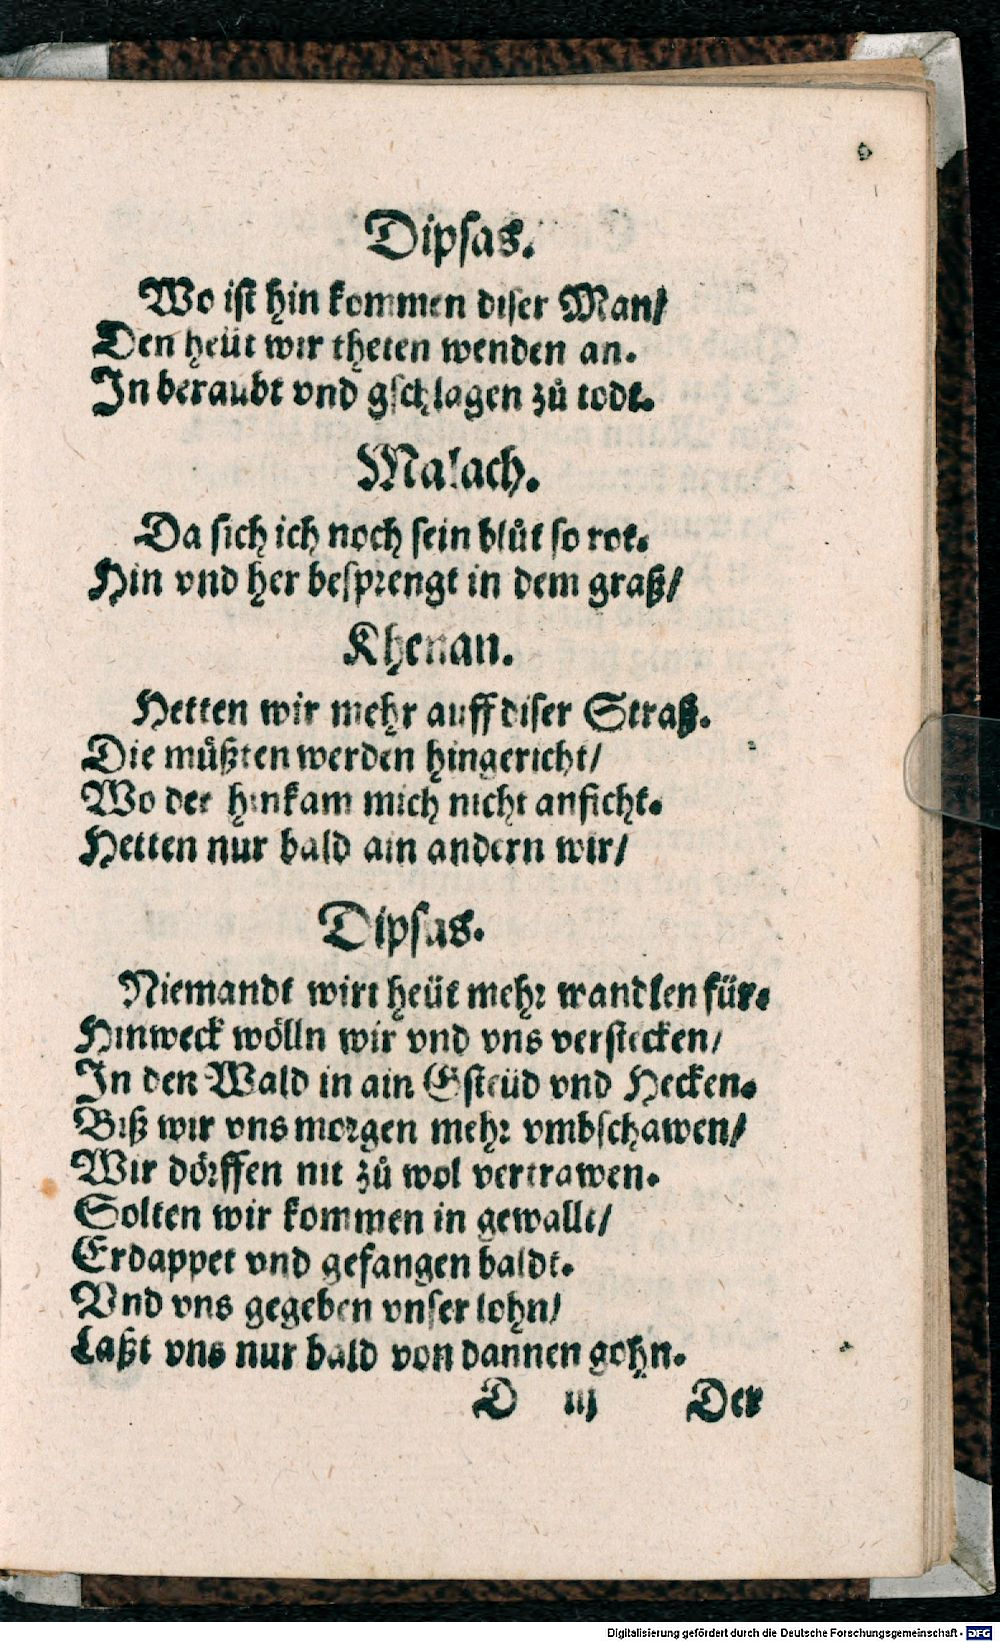 Dipſas.
Wo iſt hin kommen diſer Man/
Den heüt wir theten wenden an.
In beraubt vnd gſchlagen zů todt.
Malach.
Da ſich ich noch ſein blůt ſo rot.
Hin vnd her beſprengt in dem graß/
Khenan.
Hetten wir mehr auff diſer Straß.
Die müßten werden hingericht/
Wo der hinkam mich nicht anficht.
Hetten nur bald ain andern wir/
Dipſas.
Niemandt wirt heüt mehr wandlen für.
Hinweck wölln wir vnd vns verſtecken/
In den Wald in ain Gſteüd vnd Hecken.
Biß wir vns morgen mehr vmbſchawen/
Wir dörffen nit zů wol vertrawen.
Solten wir kommen in gewallt/
Erdappet vnd gefangen baldt.
Vnd vns gegeben vnſer lohn/
Laßt vns nur bald von dannen gohn.
D iij Der
Digitalisierung gefördert durch die Deutsche Forschungsgemeinschaft - DFG